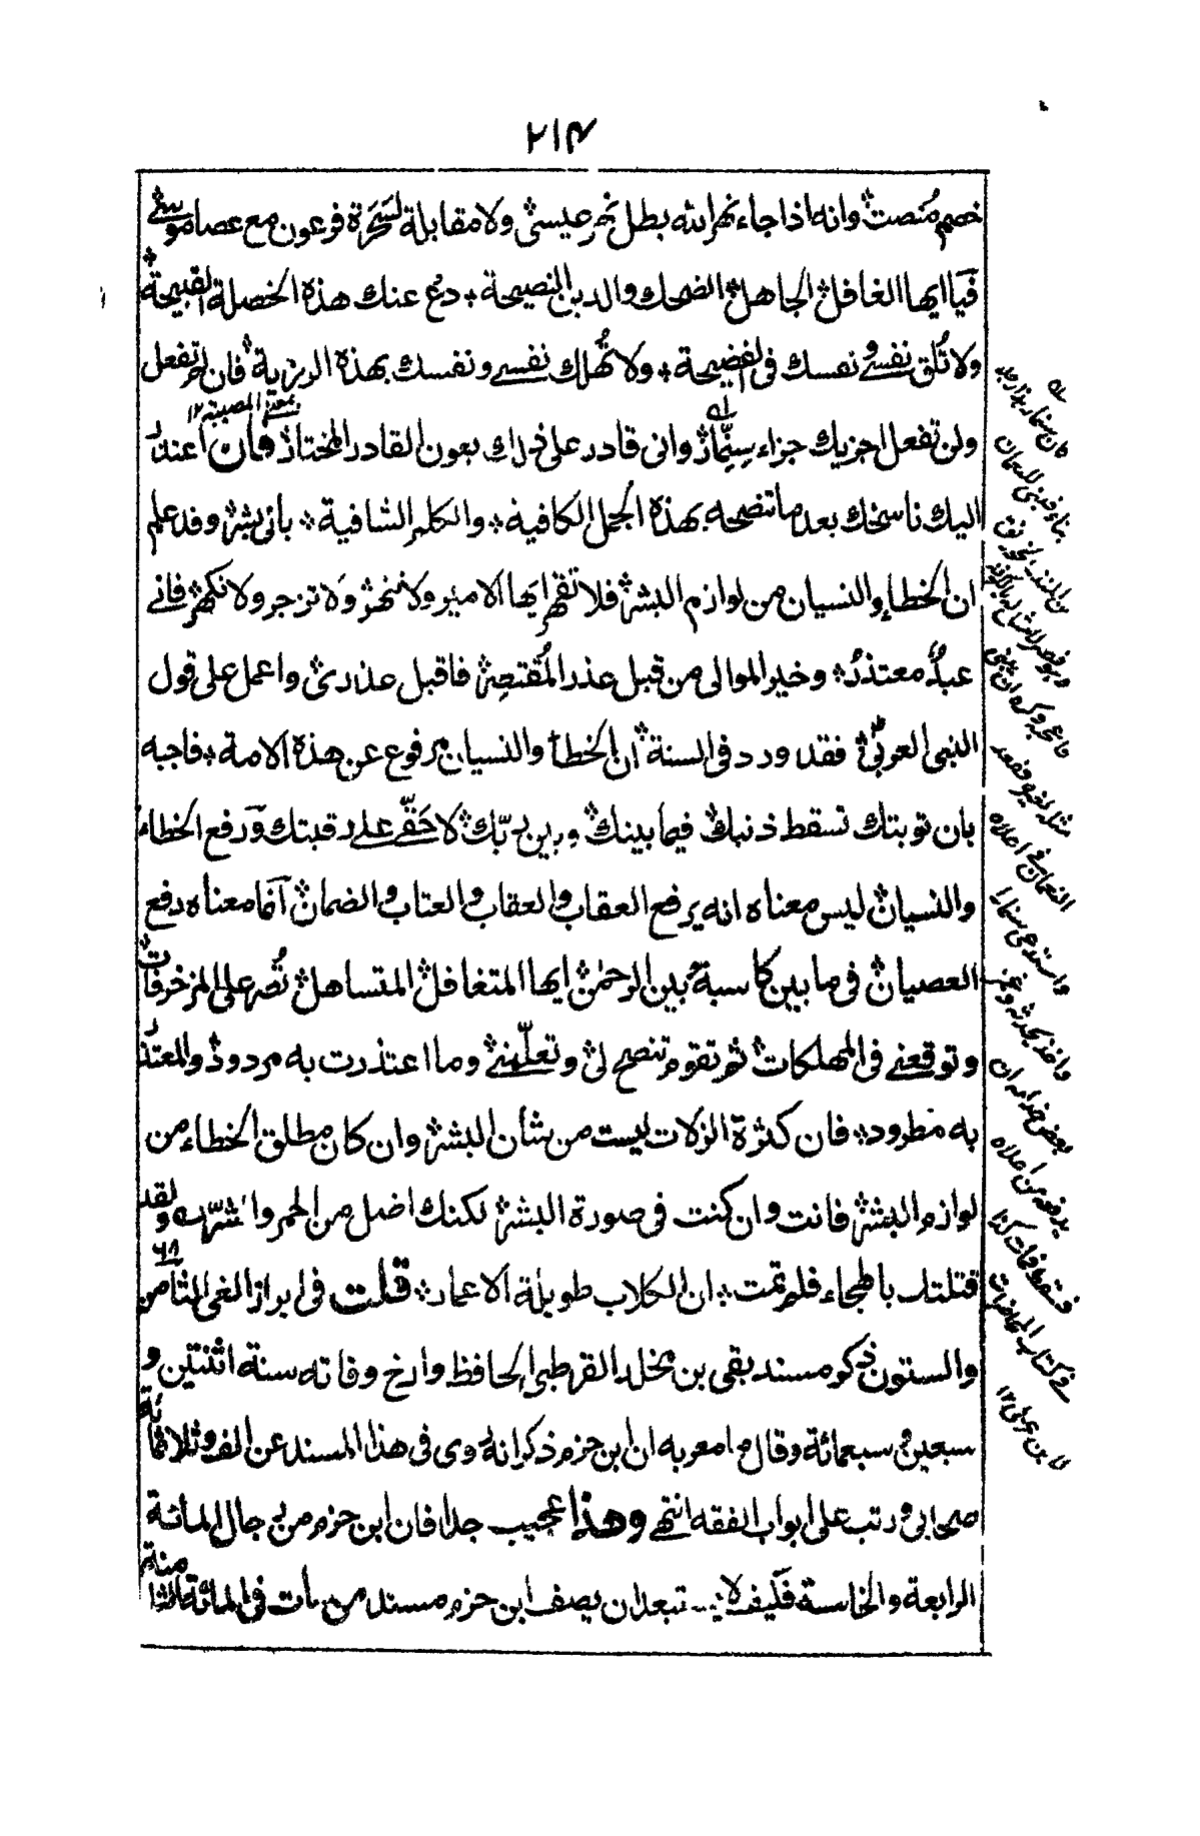 ٢١٤
خصم مُنصت وانه اذا جاء نهر الله بطل نهر عيسى ولا مقابلة لسَحَرَة فرعون مع عصا موسى
فَيَا ايها الغافل الجاهل الضحك والدين النصيحة دع عنك هذه الخصلة القبيحة
ولا تُلق نفسى ونفسك فى الفضيحة ولا تُهلك نفسى ونفسك بهذه الرزية فان لم تفعل
بمعنى المصيبة ١٢
ولن تفعل اجزيك جزاء سِنِمّار وانى قادر على ذلك بعون القادر المختار فان اعتذر
اليك ناسخك بعد ما تنصحه بهذه الجمل الكافية والكلم الشافية بانى بشر وقد علم
ان الخطاء والنسيان من لوازم البشر فلا تقهر ايها الامير ولا تنهر ولا تزجر ولا تكهر فانى
عبدٌ معتذر وخير الموالى من قبل عذر المُقتصِر فاقبل عذرى واعمل على قول
النبى العربى فقد ورد فى السنة ان الخطأ والنسيان مرفوع عن هذه الامة فاجبه
بان توبتك تسقط ذنبك فيما بينك وبين ربّك لا حَقّى على رقبتك ورفع الخطاء
والنسيان ليس معناه انه يرفع العقاب والعقاب والعتاب والضمان انما معناه رفع
العصيان فى ما بين كاسبة بين الرحمن ايها المتغافل المتساهل تُصر على المزخرفات
وتوقعنى فى المهلكات ثم تقوم تنصح لى وتعلّمنى وما اعتذرت به مردود والمعتذر
به مطرود فان كثرة الزلات ليست من شأن البشر وان كان مطلق الخطاء من
لوازم البشر فانت وان كنت فى صورة البشر لكنك اضل من الحمر واشرّه ولقد
٦٨
قتلتك بالهجاء فلم تمت ان الكلاب طويلة الاعمار قلت فى ابراز الغى الثامن
والستون ذكر مسند بقى بن مخلد القرطبى الحافظ وارخ وفاته سنة اثنتين و
سبعين وسبعمائة وقال ما معربه ان ابن حزم ذكر انه روى فى هذا المسند عن الف وثلاثمائة
صحابى ورتب على ابواب الفقه انتهى وهذا عجيب جدا فان ابن حزم من رجال المائة
الرابعة والخامسة فكيف لا يستبعد ان يصف ابن حزم مسند من مات فى المائة الثامنة
كان سنمار
بناء فبنى للنعمان
بن المنذر الخورنق
مثله لغيره فصعد
النعمان فى اعلاه
واستدعى سنمارا
واخذ يحدثه وغمز
بعض خدامه ان
يدفعه من اعلاه
فسقط فمات كذا
فى كتاب المحاضرات
لابن عربى ١٢